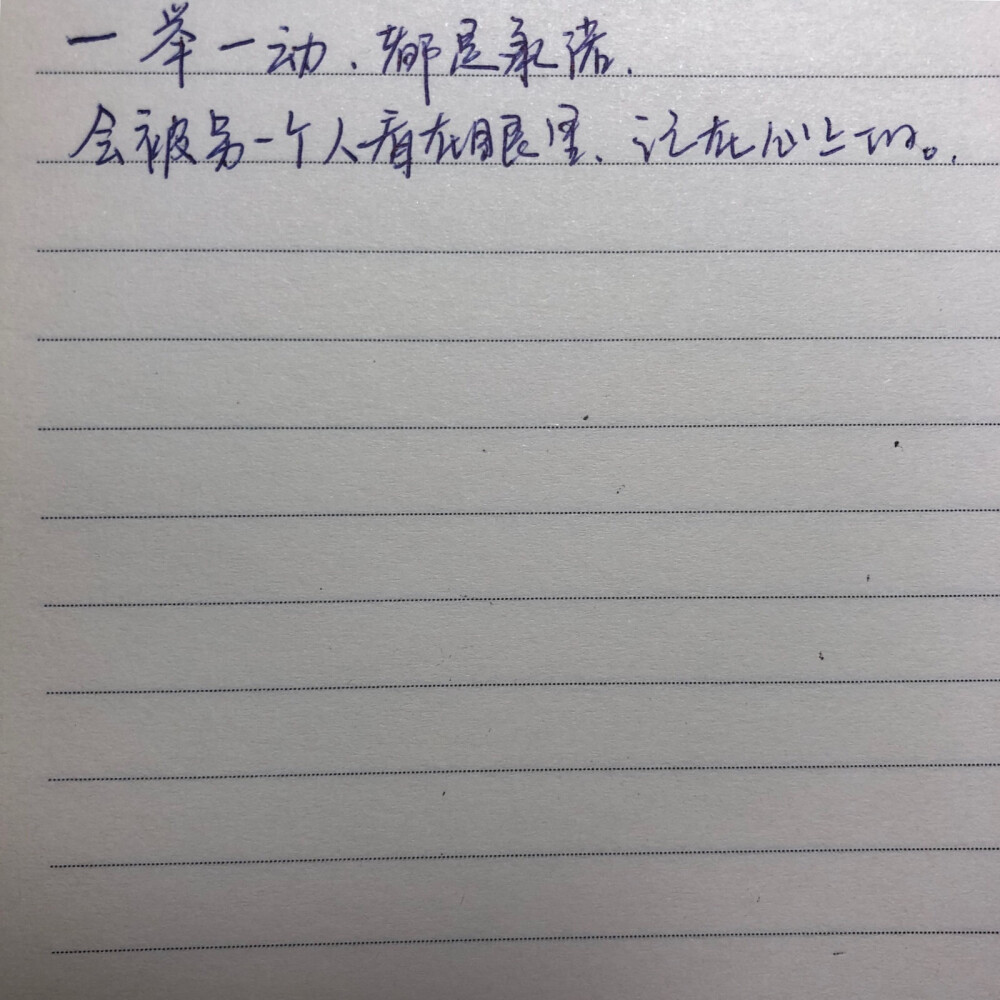 一举一动、都是承诺.
会被另一个人看在眼里、记在心上的。.